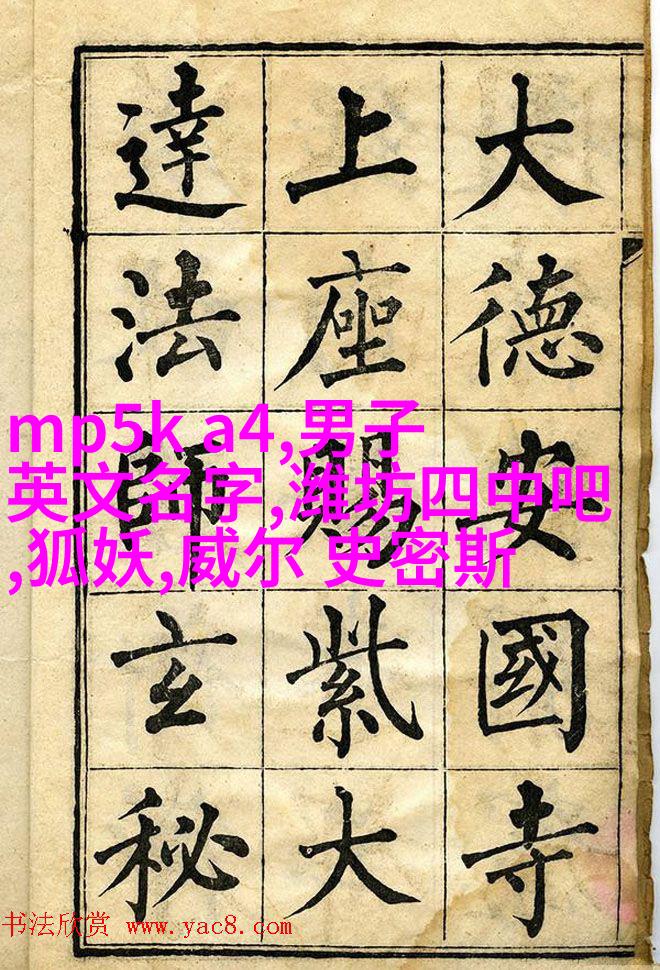 大德安國寺
上座賜紫大
達法師玄秘
mp5k a4,男子
英文名字,潍坊四中吧
,狐妖,威尔 史密斯
书法欣赏 www.yac8.com